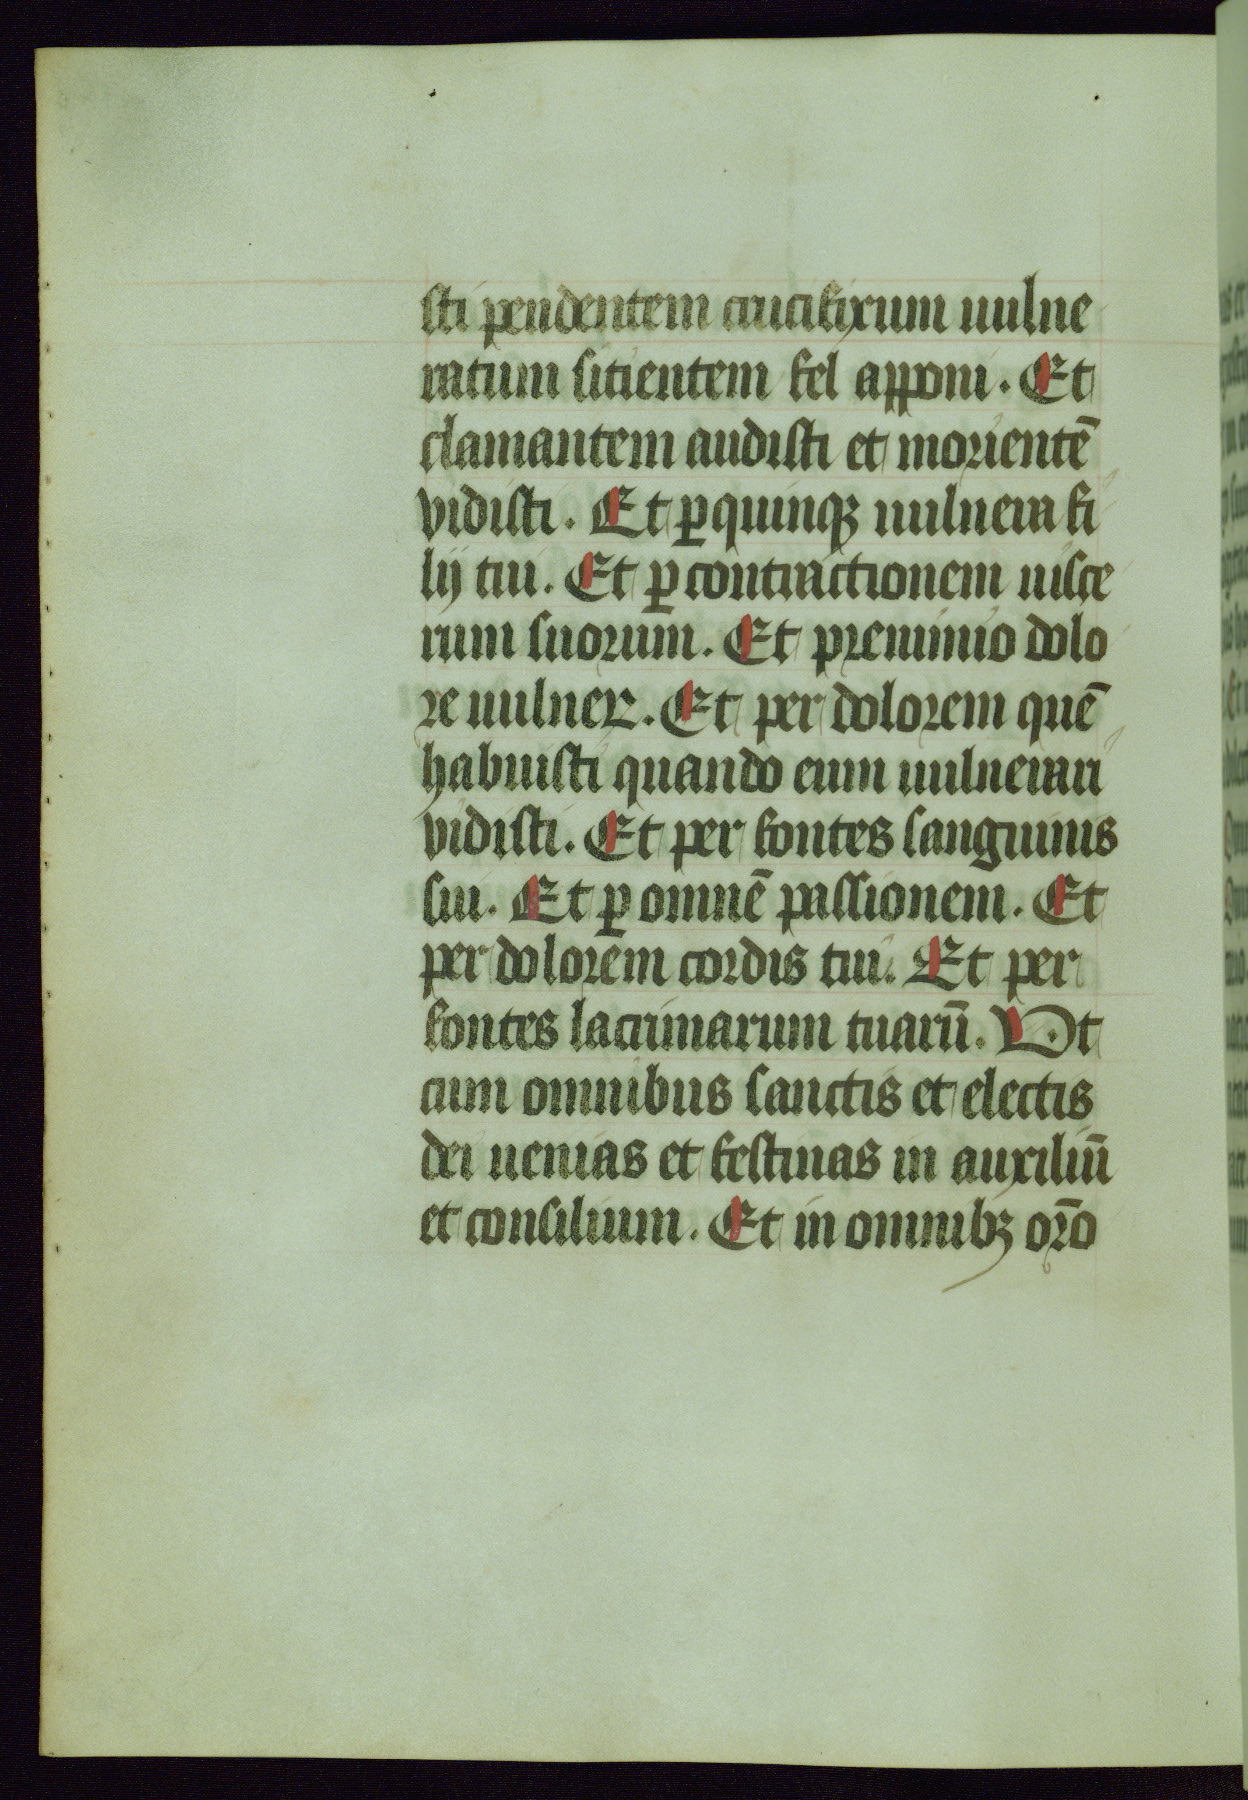 sti pendentem crucifixum uulne
ratum sitientem fel apponi. Et
clamantem audisti et morientē
vidisti. Et ꝑ quinqꝫ uulnera fi
lij tui. Et ꝑ contractionem uisce
rum suorum. Et pre nimio dolo
re uulneꝝ. Et per dolorem quē
habuisti quando eum uulnerari
vidisti. Et per fontes sanguinis
sui. Et ꝑ omnē passionem. Et
per dolorem cordis tui. Et per
fontes lacrimarum tuarū. Vt
cum omnibus sanctis et electis
dei uenias et festinas in auxiliū
et consilium. Et in omnibꝫ or̄o